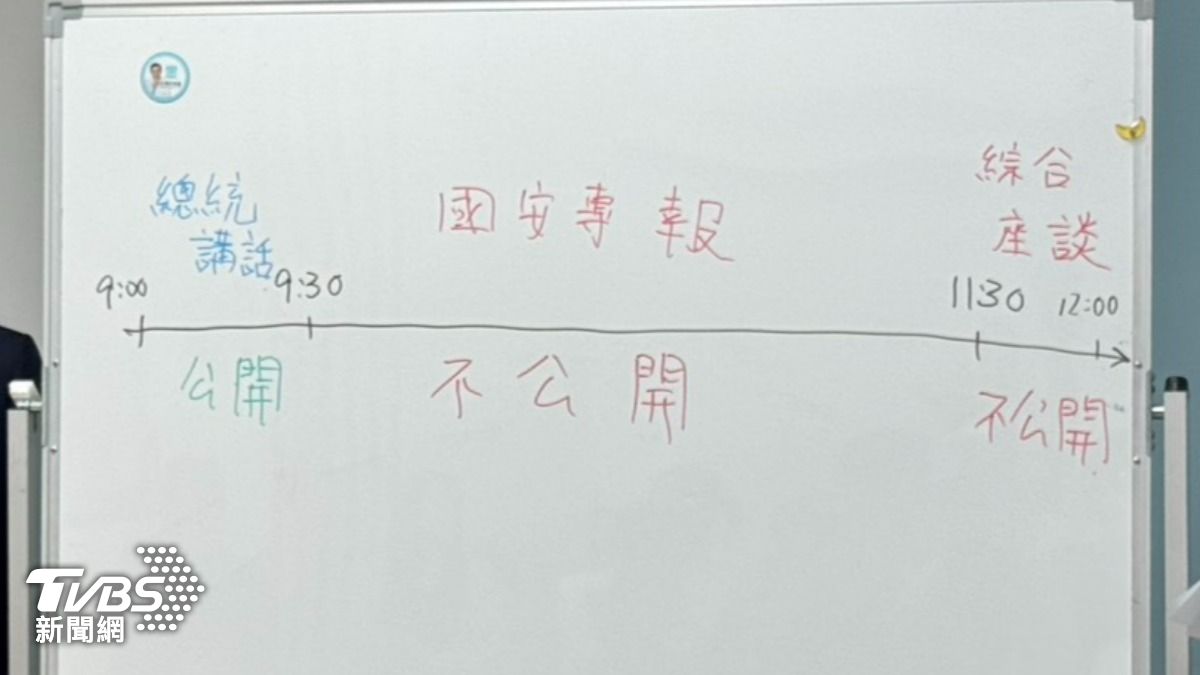 總統
講話
國安專報
綜合
座談
9:00
9:30
11:30
12:00
公開
不公開
不公開
TVBS
新聞網